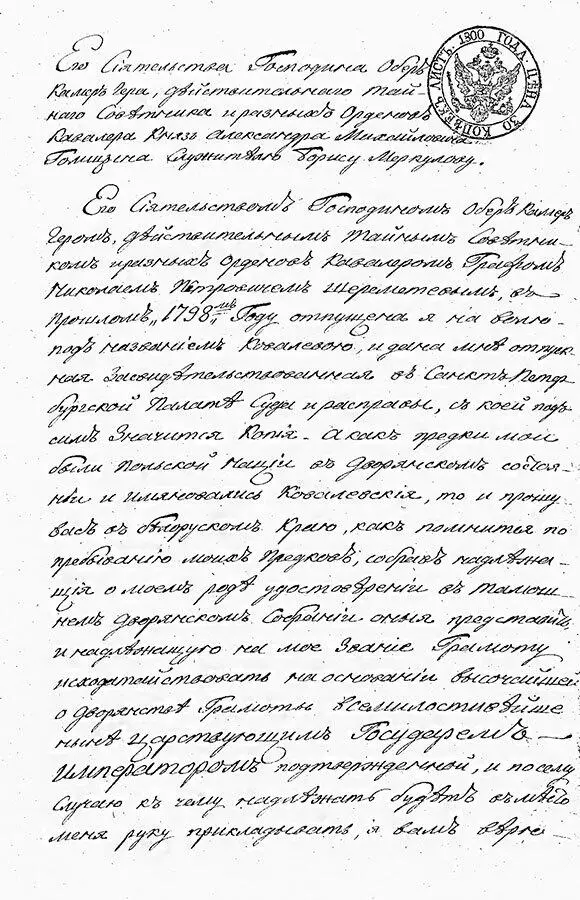 ЛИСТЪ. 1800 ГОДА. ЦѢНА 30 КОПѢЕКЪ
Его Сіятельства Господина Оберъ
Камергера, дѣйствительнаго тай-
наго Совѣтника и разныхъ Орденовъ
Кавалера Князь Александра Михайловича
Голицына Служителю Борису Меркулову.
Его Сіятельствомъ Господиномъ Оберъ Камер
геромъ, дѣйствительнымъ тайнымъ Совѣтни-
комъ и разныхъ Орденовъ Кавалеромъ Графомъ
Николаемъ Петровичемъ Шереметевымъ, въ
прошломъ „1798„мъ Году отпущена я на волю
подъ названіемъ Ковалевою, и дана мнѣ отпуск-
ная Засвидѣтельствованная въ Санктъ Петер-
бургской Палатѣ Суда и расправы, съ коей подъ
симъ Значится Копія. А какъ предки мои
были Польской націи въ Дворянскомъ состоя-
ніи и имяновались Ковалевскія, то и прошу
васъ въ бѣлорускомъ Краю, какъ помнится по
пребыванію моихъ Предковъ, собравъ надлежа-
щія о моемъ родѣ удостовѣреніи въ тамош-
немъ Дворянскомъ Собраніи оныя представить
и надлежащую на мое Званіе Грамоту
исходатайствовать на основаніи высочайшей
о дворянствѣ Грамоты всемилостивѣйше
нынѣ царствующимъ Государемъ
Императоромъ подтвержденной, и по сему
Случаю къ чему надлежать будетъ въмѣсто
меня руку прикладывать, я вамъ вѣрю